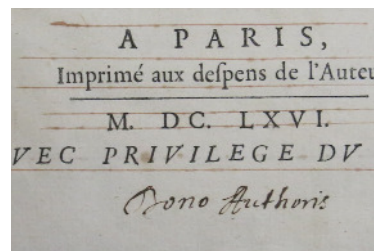 A PARIS,
Imprimé aux deſpens de l'Auteu
M. DC. LXVI.
VEC PRIVILEGE DV
Dono Authoris